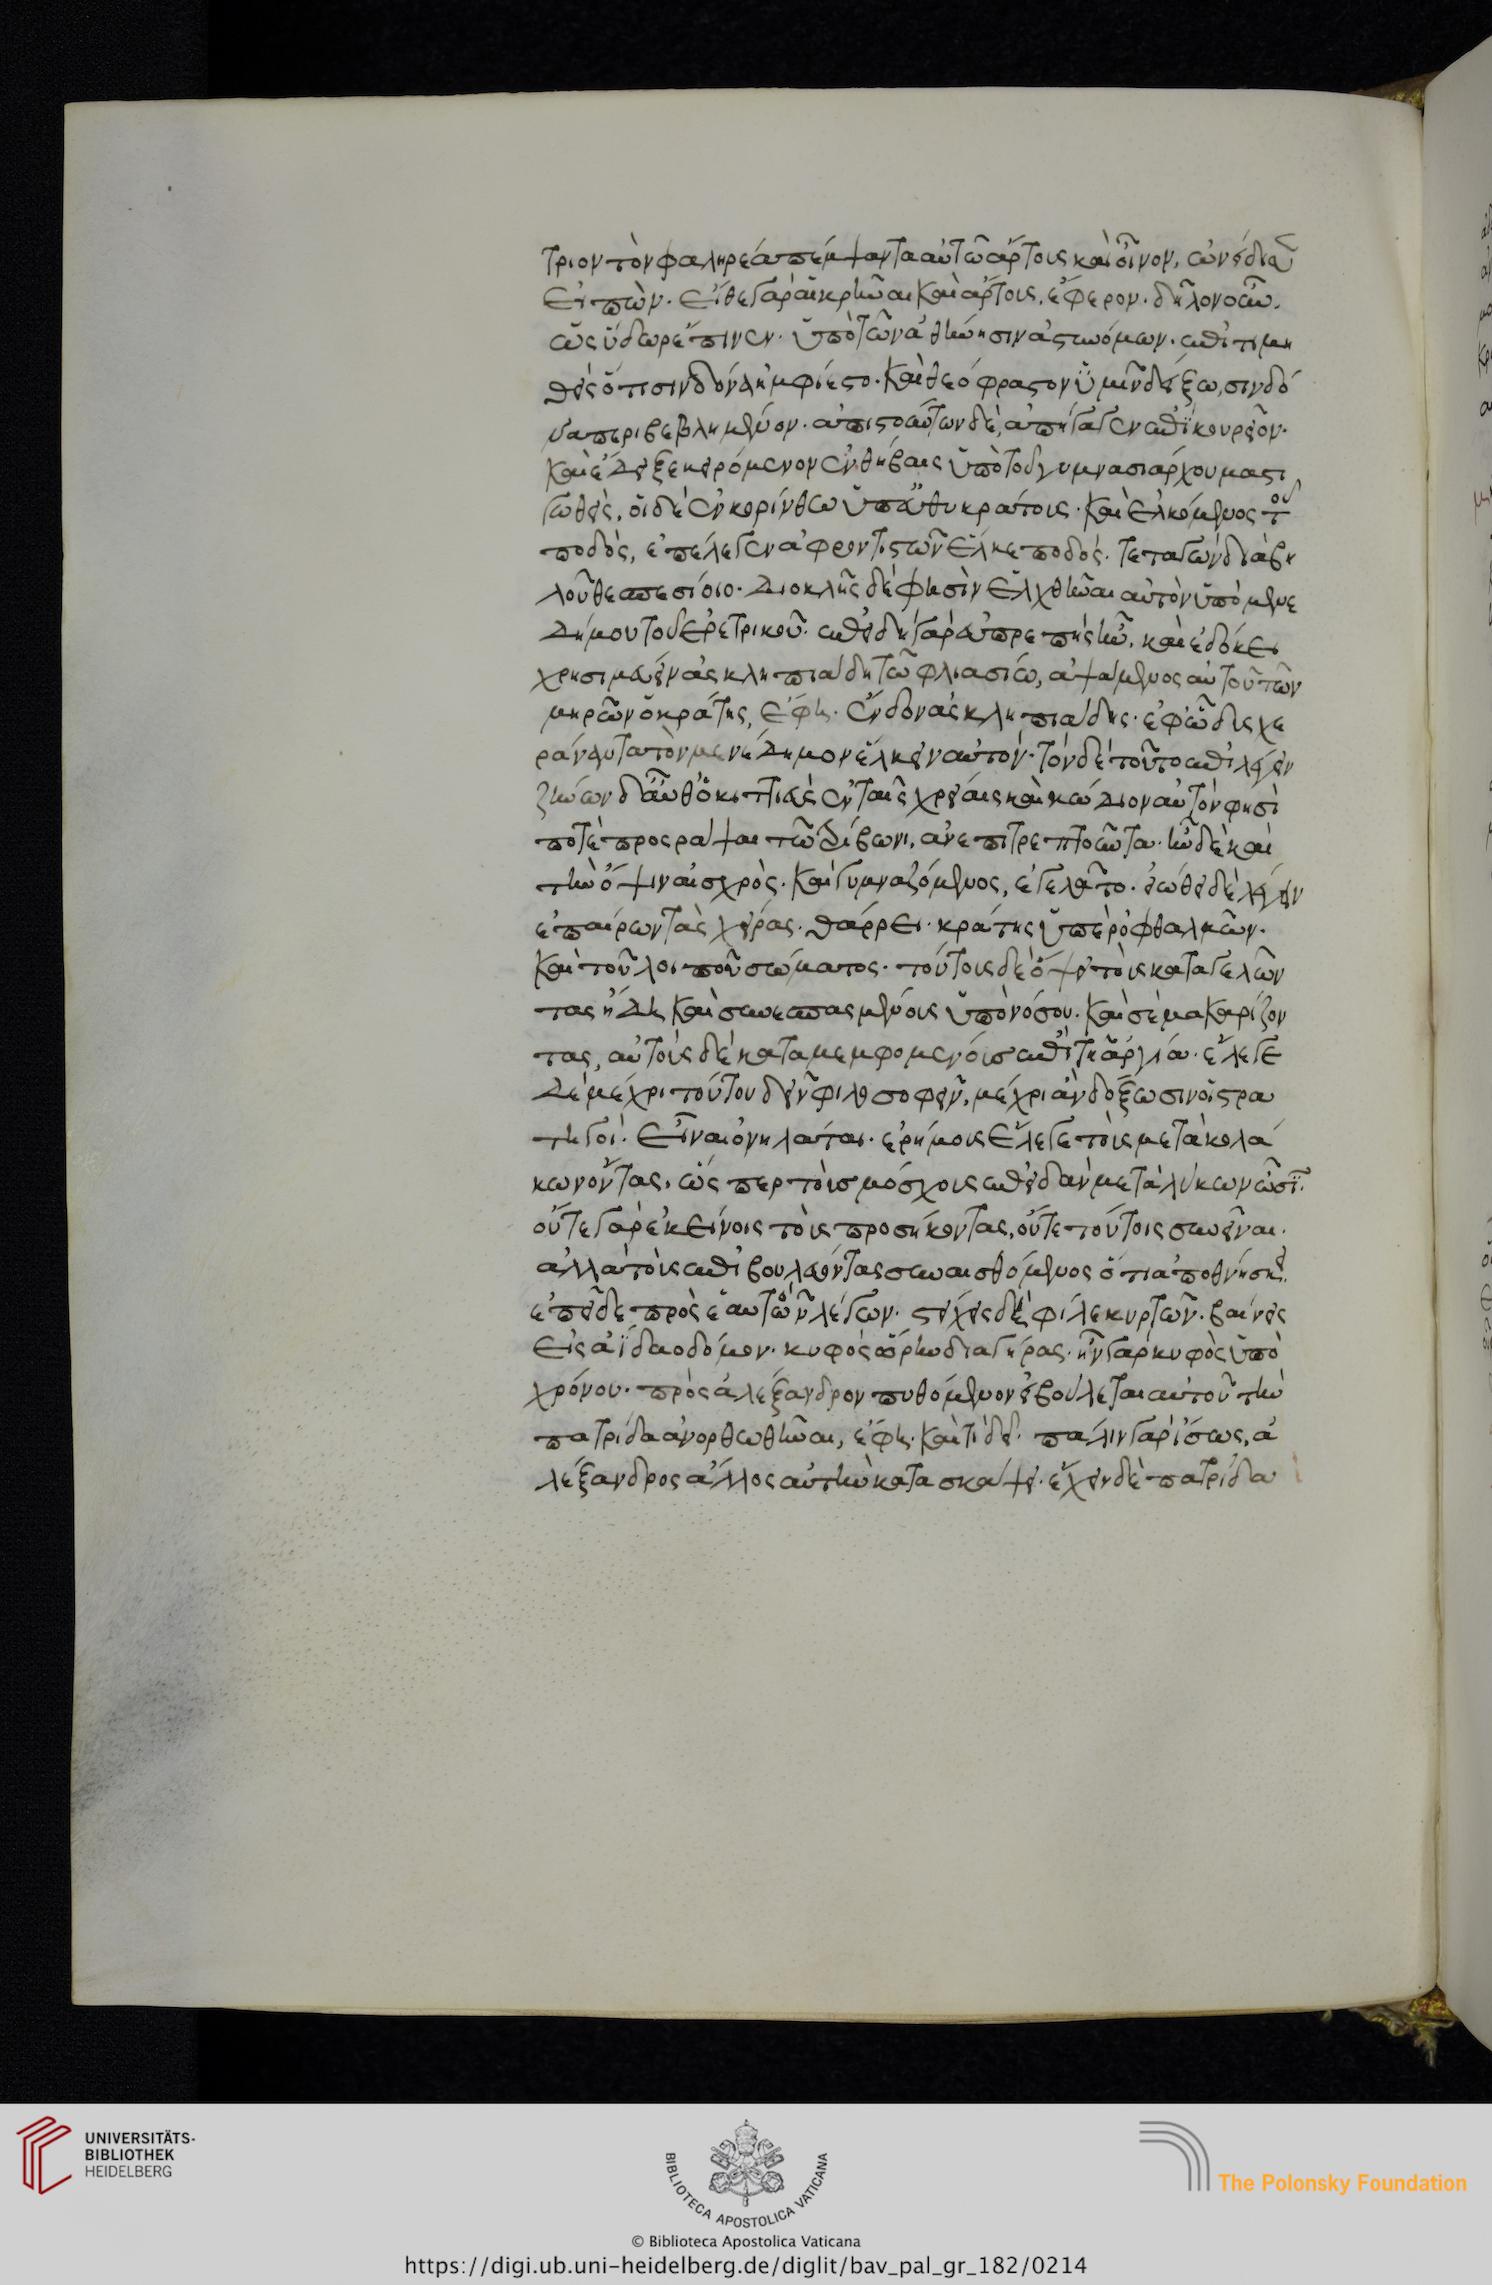 τριον τὸν φαληρέα πέμψαντα αὐτῶ ἄρτους καὶ οἶνον, ὠνείδισεν
εἰπὼν. εἴθε γὰρ αἱ κρῆναι καὶ ἄρτους, ἔφερον. δῆλον οὖν.
ὡς ὕδωρ ἔπινεν. ὑπὸ τῶν ἀθήνησιν ἀστυνόμων. ἐπιτιμη
θεὶς ὅτι σινδόνα ἠμφίεστο. καὶ θεόφραστον ὑμῖν δείξω, σινδό
να περιβεβλημένον. ἀπιστούντων δὲ, ἀπήγαγεν ἐπὶ κουρεῖον.
καὶ ἔδειξε κειρόμενον ἐν θήβαις ὑπὸ τοῦ γυμνασιάρχου μαστι
γωθεὶς, οἱ δὲ ἐν κορίνθω ὑπ' εὐθυκράτους. καὶ ἑλκόμενος τοῦ
ποδὸς, ἐπέλεγεν ἀφροντιστῶν ἕλκε ποδός. τεταγὼν διὰ βη
λοῦ θεσπεσίοιο. διοκλῆς δέ φησὶν ἑλχθῆναι αὐτὸν ὑπὸ μενε
δήμου τοῦ ἐρετρικοῦ. ἐπειδὴ γὰρ εὐπρεπὴς ἦν, καὶ ἐδόκει
χρησιμεύειν ἀσκληπιάδη τῶ φλιασίω, ἁψάμενος αὐτοῦ τῶν
μηρῶν ὁ κράτης, ἔφη. ἔνδον ἀσκληπιάδης. ἐφ' ὧ δυσχε
ράναντα τὸν μενέδημον ἕλκειν αὐτόν. τόνδε τοῦτο ἐπιλέγειν
ζήνων δ' αὖθ' ὁ κιττιεὺς ἐν ταῖς χρείαις καὶ κώδιον αὐτόν φησὶ
ποτὲ προσράψαι τῶ τρίβωνι, ἀνεπιτρεπτοῦντα. ἦν δὲ καὶ
τὴν ὄψιν αἰσχρὸς. καὶ γυμναζόμενος, ἐγελᾶτο. εἰώθει δὲ λέγειν
ἐπαίρων τὰς χεῖρας. θάρρει. κράτης ὑπὲρ ὀφθαλμῶν.
καὶ τοῦ λοιποῦ σώματος. τούτους δὲ ὄψει τοὺς καταγελῶν
τας ἤδη καὶ συνεσπασμένους ὑπὸ νόσου. καὶ σὲ μακαρίζον
τας, αὐτοὺς δὲ καταμεμφομένους ἐπὶ τῆ ἀργία. ἔλεγε
δὲ μέχρι τούτου δεῖν φιλοσοφεῖν, μέχρι ἂν δόξωσιν οἱ στρα
τηγοὶ. εἶναι ὀνηλάται. ἐρήμους ἔλεγε τοὺς μετὰ κολά
κων ὄντας, ὥσπερ τοὺς μόσχους ἐπειδὰν μετὰ λύκων ὦσι.
οὔτε γὰρ ἐκείνοις τοὺς προσήκοντας, οὔτε τούτοις συνεῖναι.
ἀλλὰ τοὺς ἐπιβουλεύοντας συναισθόμενος ὅτι ἀποθνήσκει.
ἐπῆδε πρὸς ἑαυτὸν λέγων. στείχεις δὴ φίλε κυρτῶν. βαίνεις
εἰς ἀΐδαο δόμον. κυφὸς ὥρην διὰ γῆρας. ἦν γὰρ κυφὸς ὑπὸ
χρόνου. πρὸς ἀλέξανδρον πυθόμενον εἰ βούλεται αὐτοῦ τὴν
πατρίδα ἀνορθωθῆναι, ἔφη. καὶ τί δεῖ. πάλιν γὰρ ἴσως, ἀ
λέξανδρος ἄλλος αὐτὴν κατασκάψει. ἔχειν δὲ πατρίδα
UNIVERSITÄTS-
BIBLIOTHEK
HEIDELBERG
BIBLIOTECA APOSTOLICA VATICANA
The Polonsky Foundation
© Biblioteca Apostolica Vaticana
https://digi.ub.uni-heidelberg.de/diglit/bav_pal_gr_182/0214